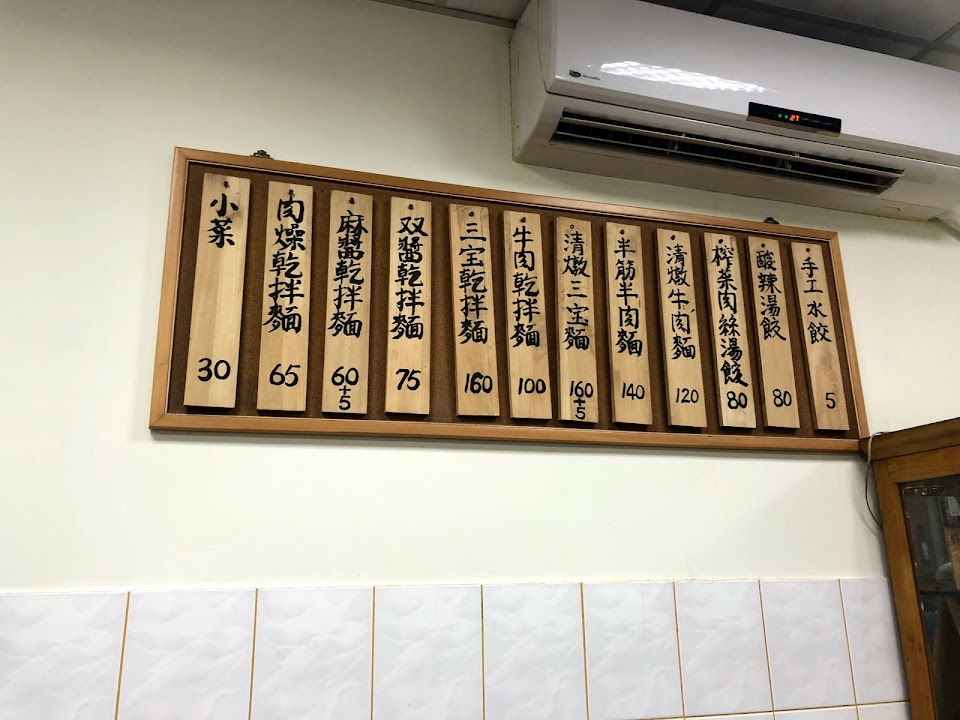 手工水餃
5
酸辣湯餃
80
榨菜肉絲湯餃
80
清燉牛肉麵
120
半筋半肉麵
140
清燉三宝麵
160
+5
牛肉乾拌麵
100
三宝乾拌麵
160
双醬乾拌麵
75
麻醬乾拌麵
60
+5
肉燥乾拌麵
65
小菜
30
27